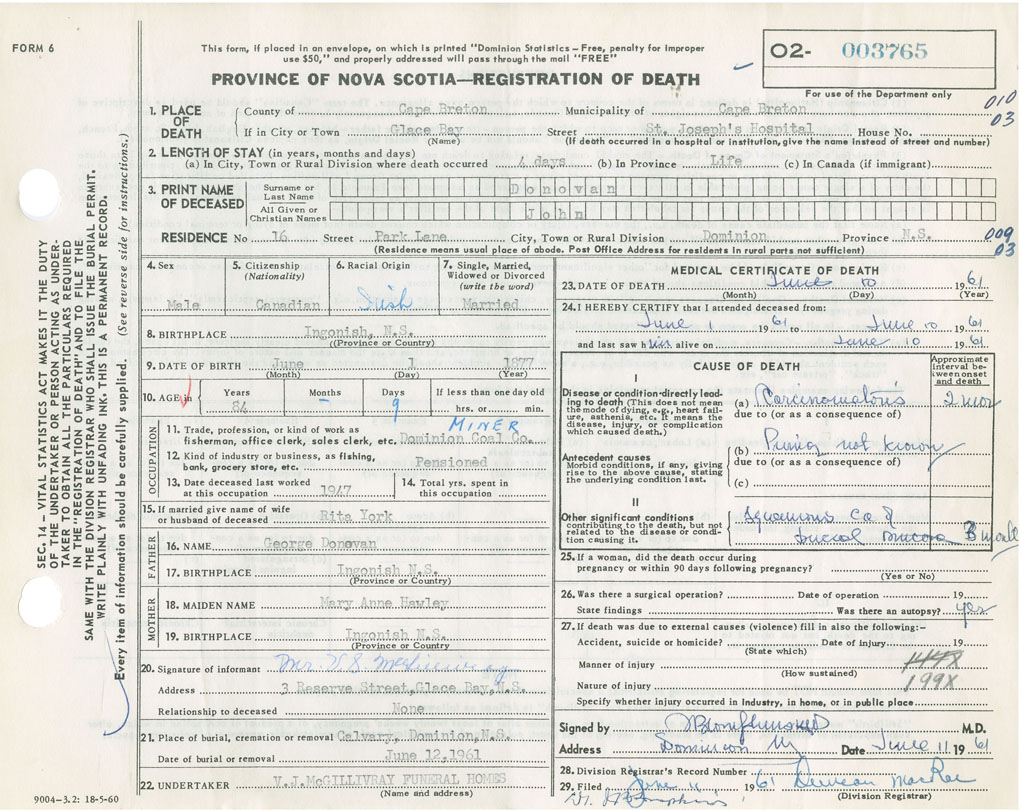 FORM 6
This form, if placed in an envelope, on which is printed "Dominion Statistics – Free, penalty for improper
use $50," and properly addressed will pass through the mail "FREE"
PROVINCE OF NOVA SCOTIA—REGISTRATION OF DEATH
02- 003765
For use of the Department only
010
03
1. PLACE OF DEATH
County of Cape Breton Municipality of Cape Breton
If in City or Town Glace Bay Street St. Joseph's Hospital House No.
(Name) (If death occurred in a hospital or institution, give the name instead of street and number)
2. LENGTH OF STAY (in years, months and days)
(a) In City, Town or Rural Division where death occurred 4 days (b) In Province Life (c) In Canada (if immigrant)
3. PRINT NAME OF DECEASED
Surname or Last Name Donovan
All Given or Christian Names John
RESIDENCE No 16 Street Park Lane City, Town or Rural Division Dominion Province N.S.
009
03
(Residence means usual place of abode. Post Office Address for residents in rural parts not sufficient)
4. Sex Male
5. Citizenship (Nationality) Canadian
6. Racial Origin Irish
7. Single, Married, Widowed or Divorced (write the word) Married
8. BIRTHPLACE Ingonish, N.S.
(Province or Country)
9. DATE OF BIRTH June 1 1877
(Month) (Day) (Year)
10. AGE in Years 84 Months – Days 9 If less than one day old hrs. or min.
OCCUPATION
MINER
11. Trade, profession, or kind of work as
fisherman, office clerk, sales clerk, etc. Dominion Coal Co.
12. Kind of industry or business, as fishing,
bank, grocery store, etc. Pensioned
13. Date deceased last worked at this occupation 1947
14. Total yrs. spent in this occupation
15. If married give name of wife
or husband of deceased Rita York
FATHER
16. NAME George Donovan
17. BIRTHPLACE Ingonish N.S.
(Province or Country)
MOTHER
18. MAIDEN NAME Mary Anne Hawley
19. BIRTHPLACE Ingonish N.S.
(Province or Country)
20. Signature of informant
Address 3 Reserve Street, Glace Bay, N.S.
Relationship to deceased None
21. Place of burial, cremation or removal Calvary, Dominion, N.S.
Date of burial or removal June 12, 1961
22. UNDERTAKER V.J. McGILLIVRAY FUNERAL HOMES
(Name and address)
9004-3.2: 18-5-60
MEDICAL CERTIFICATE OF DEATH
23. DATE OF DEATH June 10 1961
(Month) (Day) (Year)
24. I HEREBY CERTIFY that I attended deceased from:
June 1 1961 to June 10 1961
and last saw him alive on June 10 1961
CAUSE OF DEATH
Approximate interval between onset and death
I
Disease or condition directly leading to death (This does not mean the mode of dying, e.g., heart failure, asthenia, etc. It means the disease, injury, or complication which caused death.)
(a) Carcinomatosis 2 mos
due to (or as a consequence of)
Antecedent causes
Morbid conditions, if any, giving rise to the above cause, stating the underlying condition last.
(b) not known
due to (or as a consequence of)
(c)
II
Other significant conditions contributing to the death, but not related to the disease or condition causing it.
Squamous Ca of
Buccal Mucosa 3
25. If a woman, did the death occur during
pregnancy or within 90 days following pregnancy?
(Yes or No)
26. Was there a surgical operation? Date of operation 19
State findings Was there an autopsy? yes
27. If death was due to external causes (violence) fill in also the following:–
Accident, suicide or homicide? Date of injury 19
(State which)
Manner of injury
(How sustained)
199X
Nature of injury
Specify whether injury occurred in industry, in home, or in public place
Signed by M.D.
Address Dominion Date June 11 1961
28. Division Registrar's Record Number
29. Filed June 11 1961 Duncan MacRae
(Division Registrar)
SEC. 14 – VITAL STATISTICS ACT MAKES IT THE DUTY
OF THE UNDERTAKER OR PERSON ACTING AS UNDER-
TAKER TO OBTAIN ALL THE PARTICULARS REQUIRED
IN THE "REGISTRATION OF DEATH" AND TO FILE THE
SAME WITH THE DIVISION REGISTRAR WHO SHALL ISSUE THE BURIAL PERMIT.
WRITE PLAINLY WITH UNFADING INK. THIS IS A PERMANENT RECORD.
Every item of information should be carefully supplied. (See reverse side for instructions.)